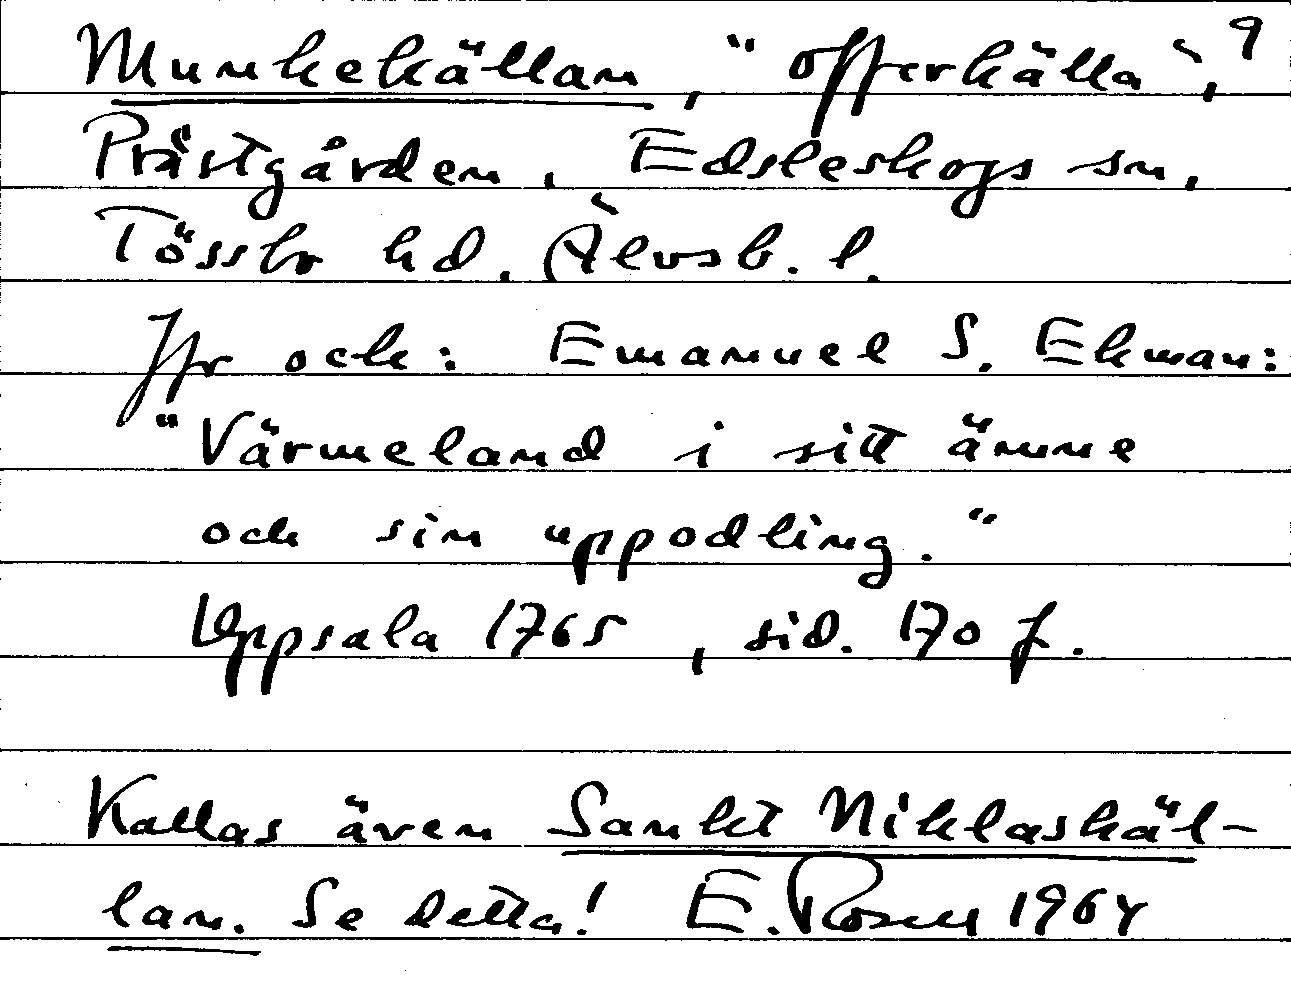 Munkekällan, "offerkälla", 9
Prästgården, Edsleskogs sn,
Tössbo hd, Älvsb. l.
Jfr ock: Emanuel S. Ekman:
"Värmeland i sitt ämne
och sin uppodling."
Uppsala 1765, sid. 170 f.
Kallas även Sankt Niklaskäl-
lan. Se detta! E. Rosell 1964